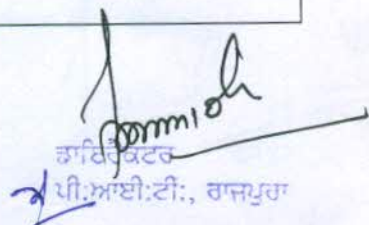 ਡਾਇਰੈਕਟਰ
ਪੀ:ਆਈ:ਟੀ:, ਰਾਜਪੁਰਾ